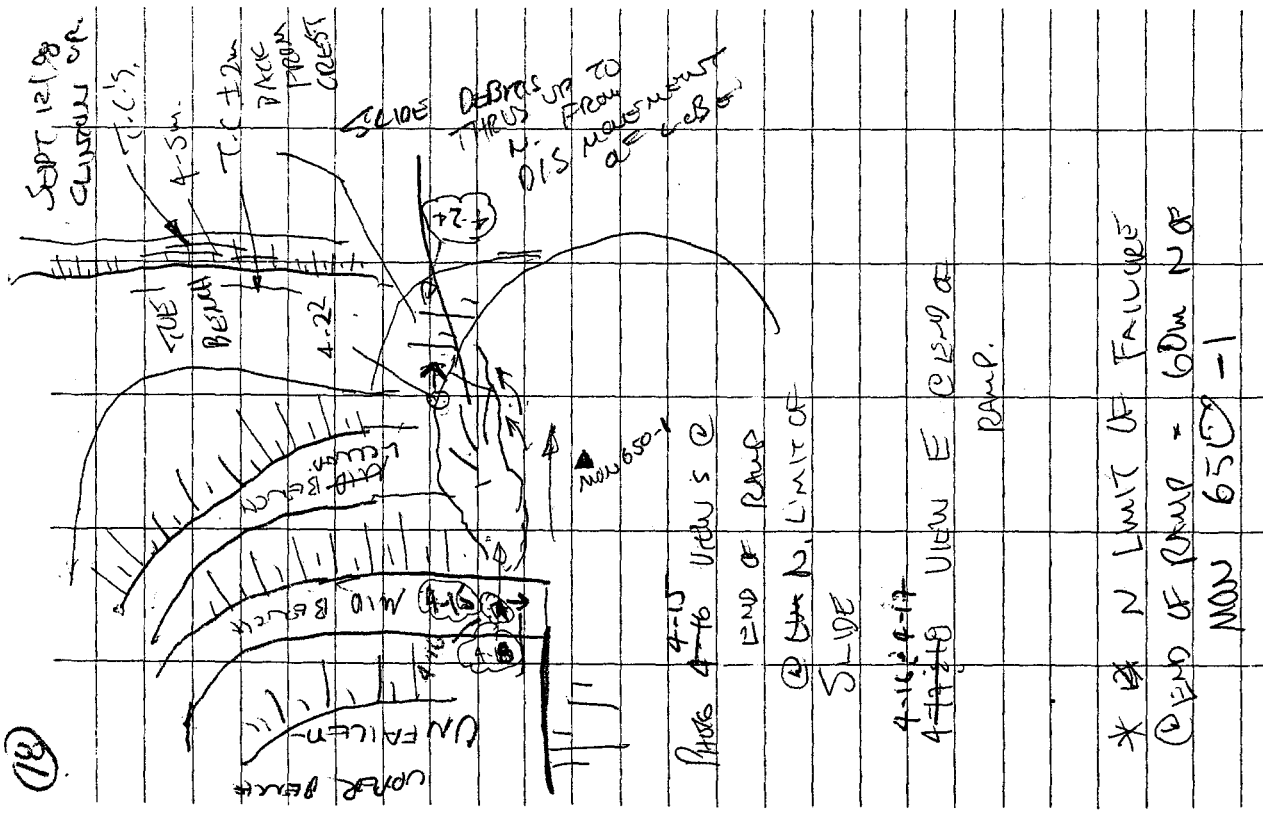 18
SEPT 12/98
T.C.'S.
4-5m.
T.C ±2m
BACK
FROM
CREST
SLIDE DEBRIS
THRUS UP TO
N. FROM
D/S MOVEMENT
OF
4-24
BENCH
4-22
MID
BENCH
MID BENCH
UNFAILED
UPPER BENCH
MON 650-1
4-15
PHOTO 4-16 VIEW S @
END OF RAMP
@ N. LIMIT OF
SLIDE
4-16 & 4-17
VIEW E @ END OF
RAMP.
* N LIMIT OF FAILURE
@ END OF RAMP = 60m N OF
MON 650-1